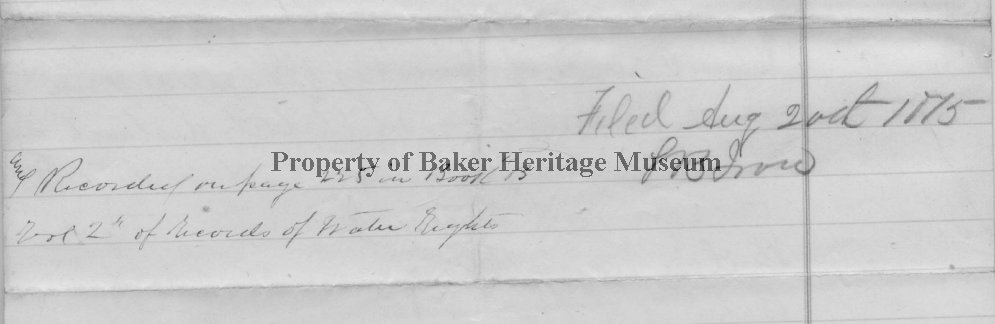 Filed Aug 20th 1875
Property of Baker Heritage Museum
and Recorded on page 225 in Book B
Vol 2" of Records of Water Rights